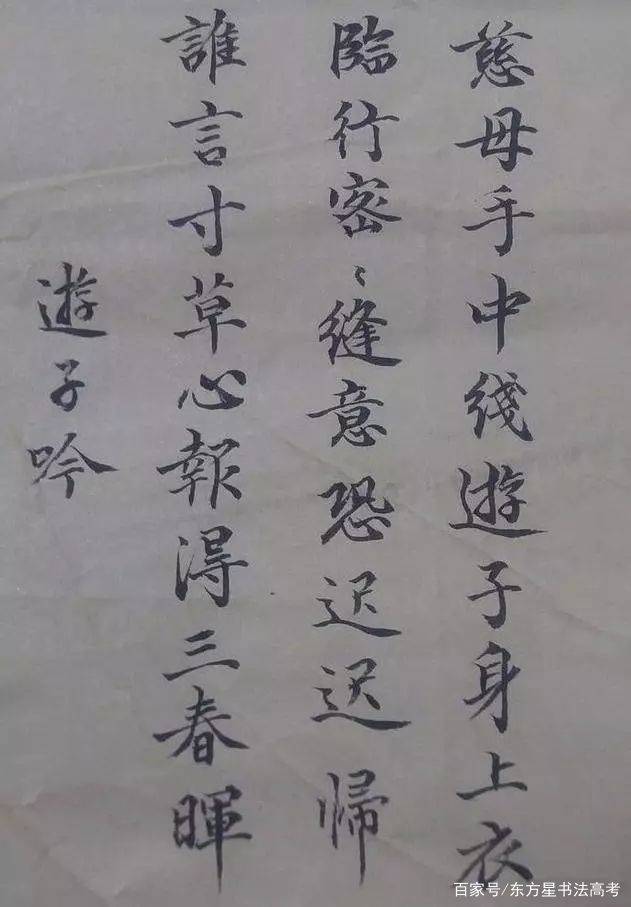 慈母手中綫遊子身上衣
臨行密〻縫意恐迟迟帰
誰言寸草心報得三春暉
遊子吟
百家号/东方星书法高考